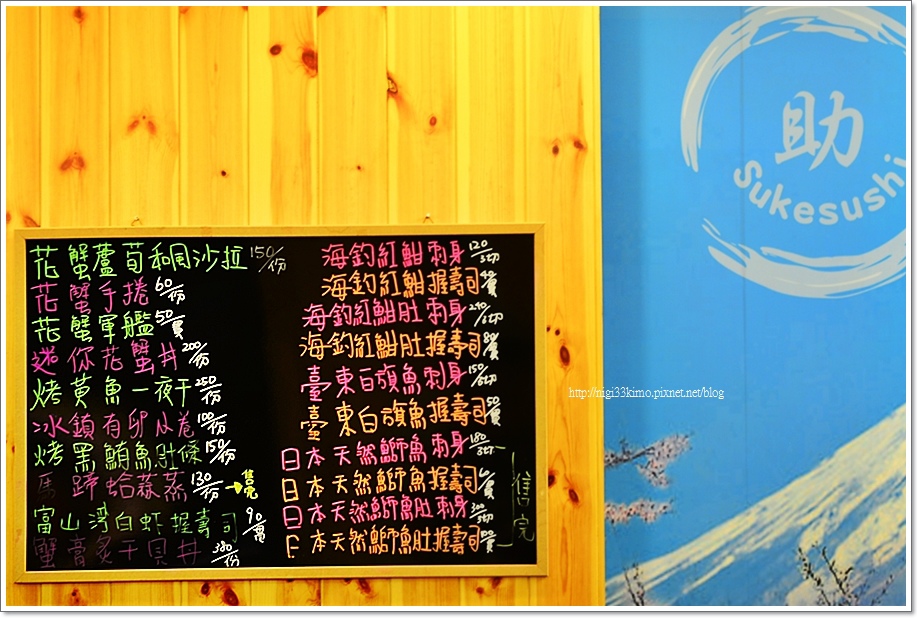 助
Sukesushi
花蟹蘆筍和風沙拉 150/份
花蟹手捲 60/份
花蟹軍艦 50/貫
迷你花蟹丼 200/份
烤黃魚一夜干 250/份
冰鎮有卵小卷 100/份
烤黑鮪魚肚條 150/份
馬蹄蛤蒜蒸 130/份 → 售完
富山湾白虾握壽司 90/貫
蟹膏炙干貝丼 380/份
海釣紅魽刺身 120/3切
海釣紅魽握壽司
海釣紅魽肚刺身 240/6切
海釣紅魽肚握壽司 80/貫
臺東白旗魚刺身 150/6切
臺東白旗魚握壽司 50/貫
日本天然鰤魚刺身 180/3切
日本天然鰤魚握壽司
日本天然鰤魚肚刺身 300/3切
日本天然鰤魚肚握壽司
售完
http://nigi33kimo.pixnet.net/blog